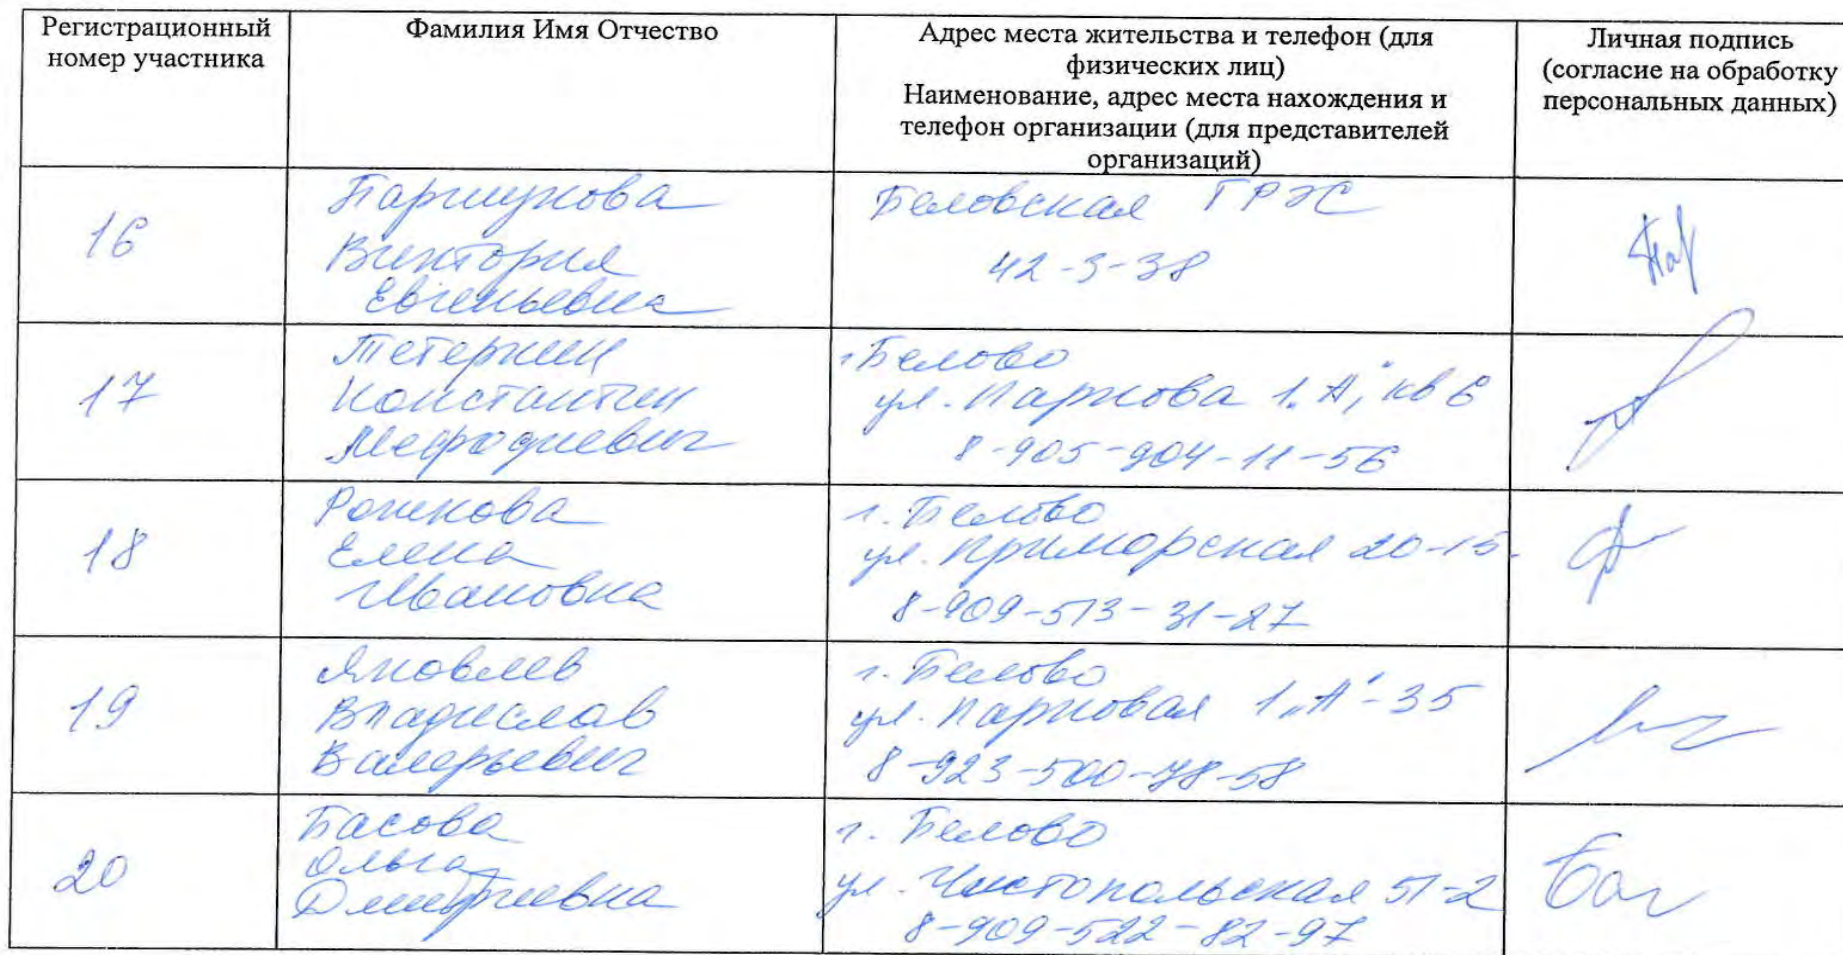 Регистрационный
номер участника
Фамилия Имя Отчество
Адрес места жительства и телефон (для
физических лиц)
Наименование, адрес места нахождения и
телефон организации (для представителей
организаций)
Личная подпись
(согласие на обработку
персональных данных)
16
Паршукова
Виктория
Евгеньевна
Беловская ГРЭС
42-3-38
17
Тетерин
Константин
Мефодиевич
г. Белово
ул. Паркова 1 "А", кв 6
8-905-904-11-56
18
Рожкова
Елена
Ивановна
г. Белово
ул. Приморская 20-15
8-909-513-31-27
19
Яковлев
Владислав
Валерьевич
г. Белово
ул. Парковая 1 "А"-35
8-923-500-78-58
20
Басова
Ольга
Дмитриевна
г. Белово
ул. Чистопольская 51-2
8-909-522-82-97